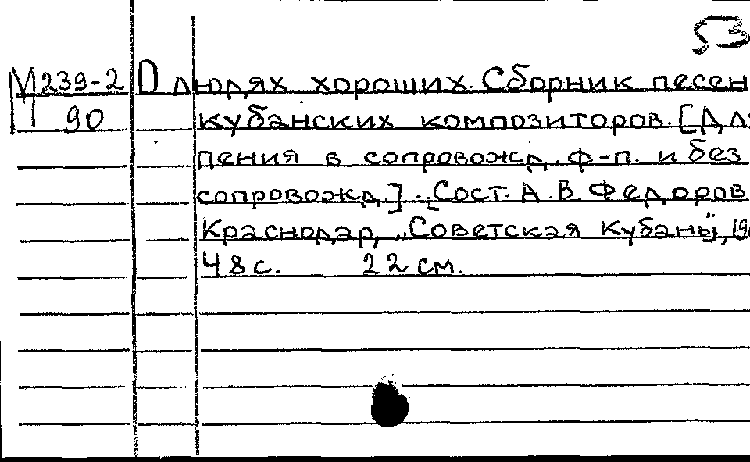 53
М 239-2 О людях хороших. Сборник песен
90 кубанских композиторов. [Для
пения в сопровожд. ф-п. и без
сопровожд.]. [Сост. А. В. Федоров
Краснодар, „Советская Кубань", 19
48 с. 22 см.